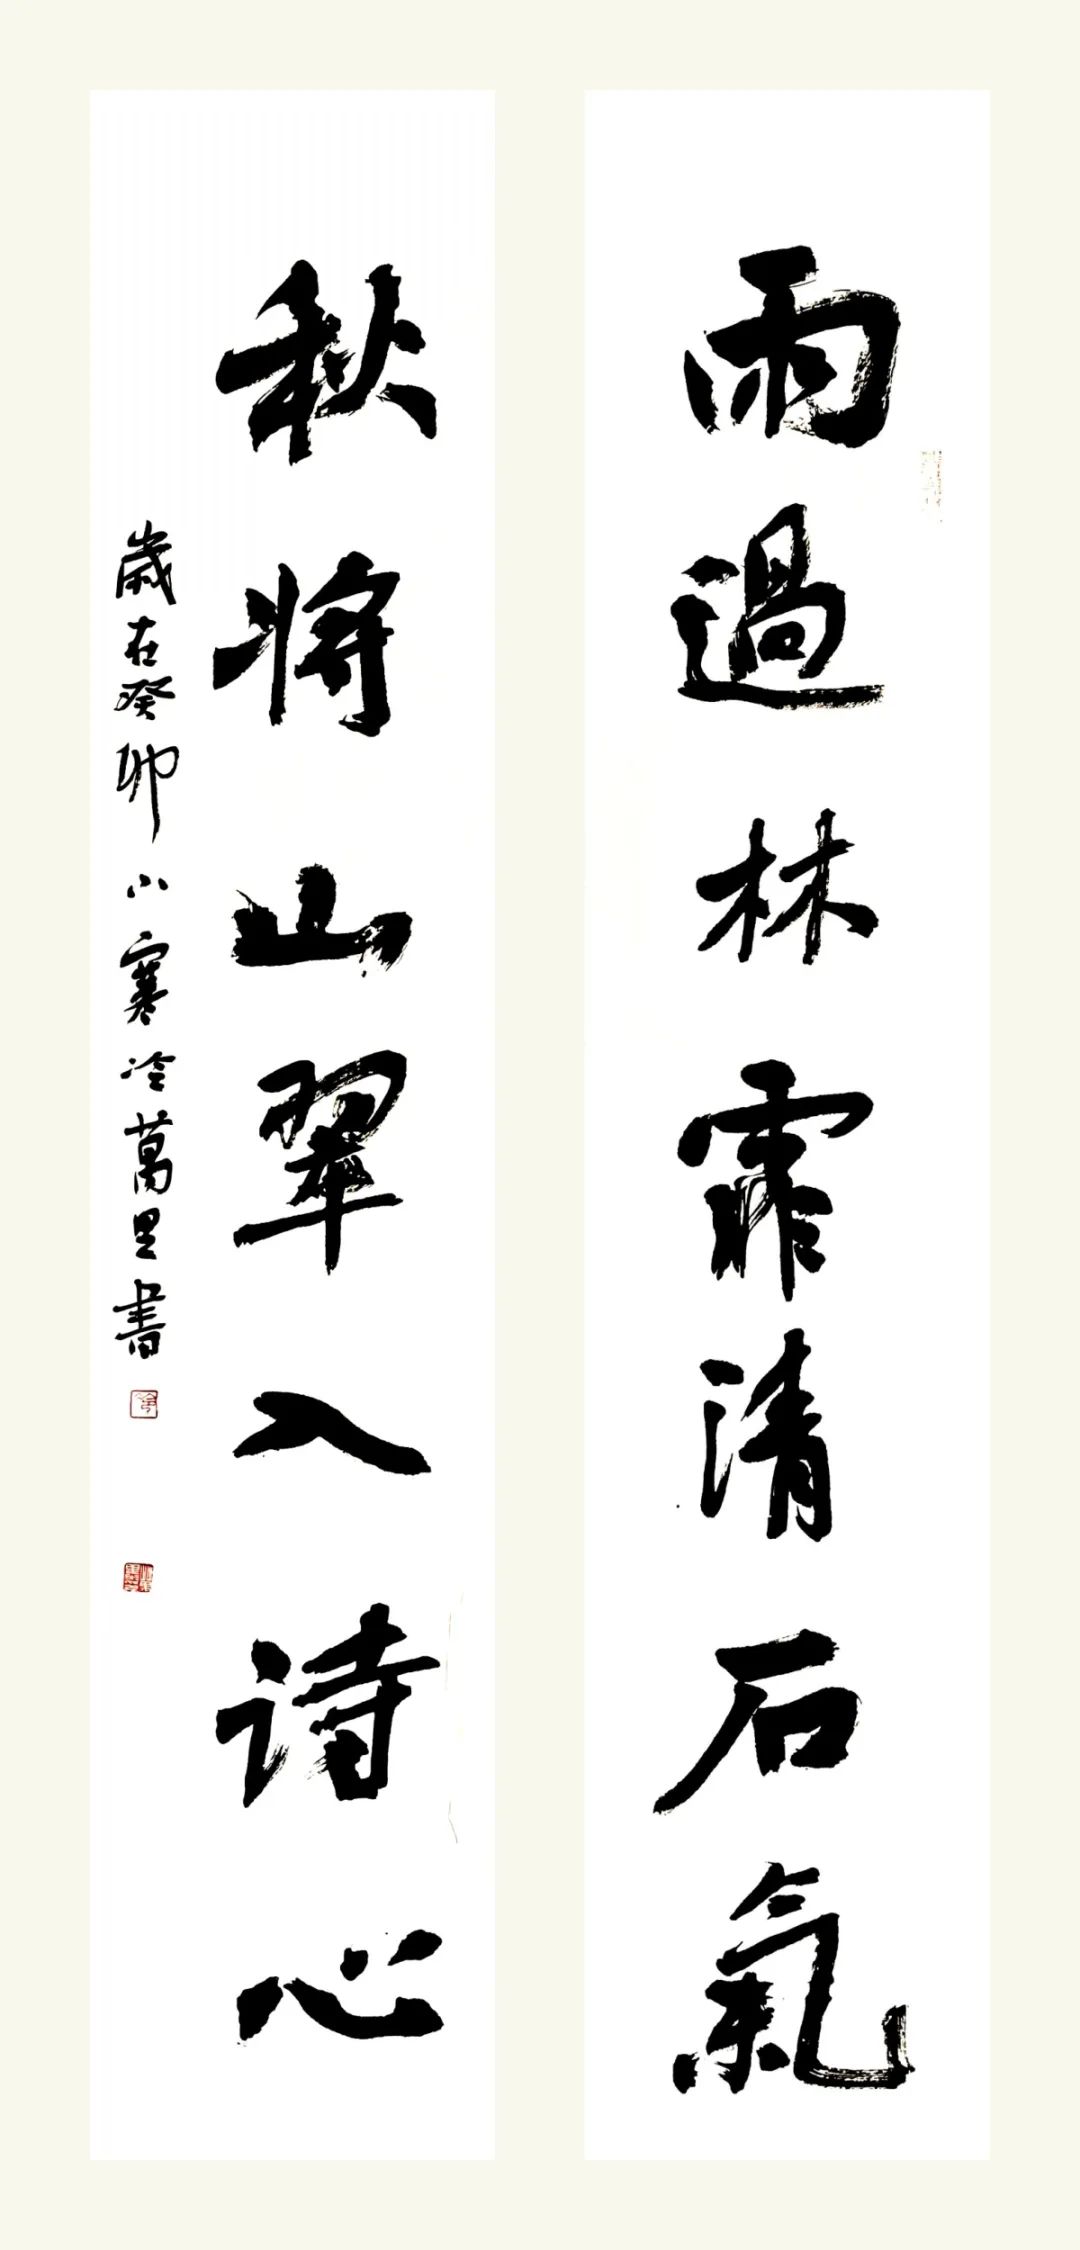 雨過林霏清石氣
秋将山翠入诗心
歲在癸卯小寒冷萬里書